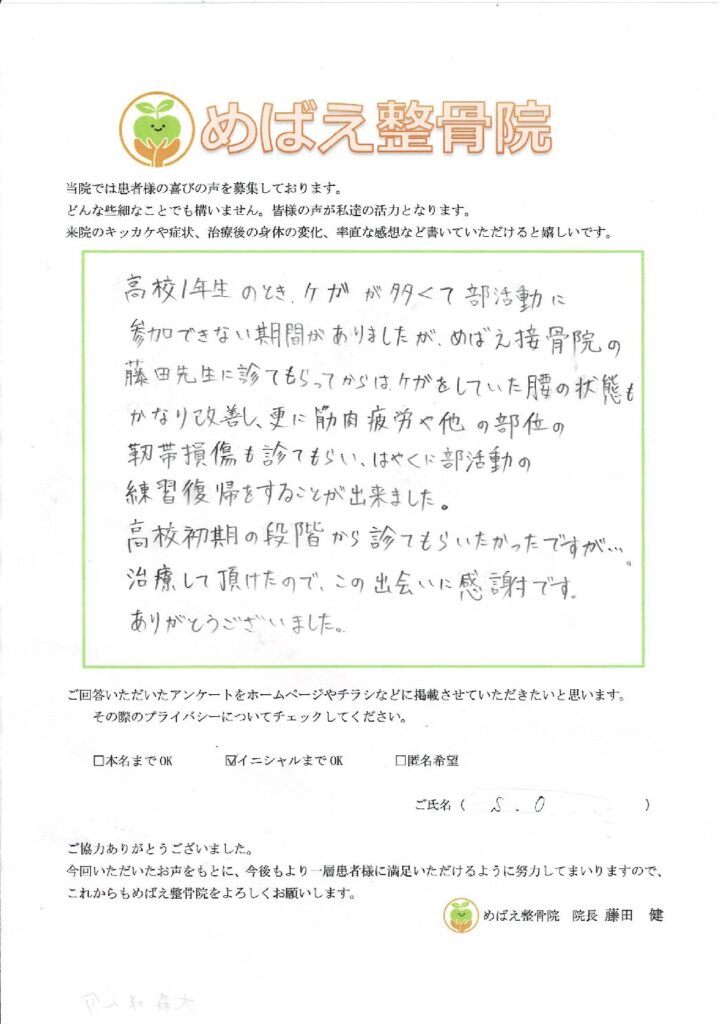 めばえ整骨院
当院では患者様の喜びの声を募集しております。
どんな些細なことでも構いません。皆様の声が私達の活力となります。
来院のキッカケや症状、治療後の身体の変化、率直な感想など書いていただけると嬉しいです。
高校1年生のとき、ケガが多くて部活動に
参加できない期間がありましたが、めばえ接骨院の
藤田先生に診てもらってからは、ケガをしていた腰の状態も
かなり改善し、更に筋肉疲労や他の部位の
靭帯損傷も診てもらい、はやくに部活動の
練習復帰をすることが出来ました。
高校初期の段階から診てもらいたかったですが…。
治療して頂けたので、この出会いに感謝です。
ありがとうございました。
ご回答いただいたアンケートをホームページやチラシなどに掲載させていただきたいと思います。
その際のプライバシーについてチェックしてください。
□本名までOK ☑イニシャルまでOK □匿名希望
ご氏名（ S.O ）
ご協力ありがとうございました。
今回いただいたお声をもとに、今後もより一層患者様に満足いただけるように努力してまいりますので、
これからもめばえ整骨院をよろしくお願いします。
めばえ整骨院 院長 藤田 健